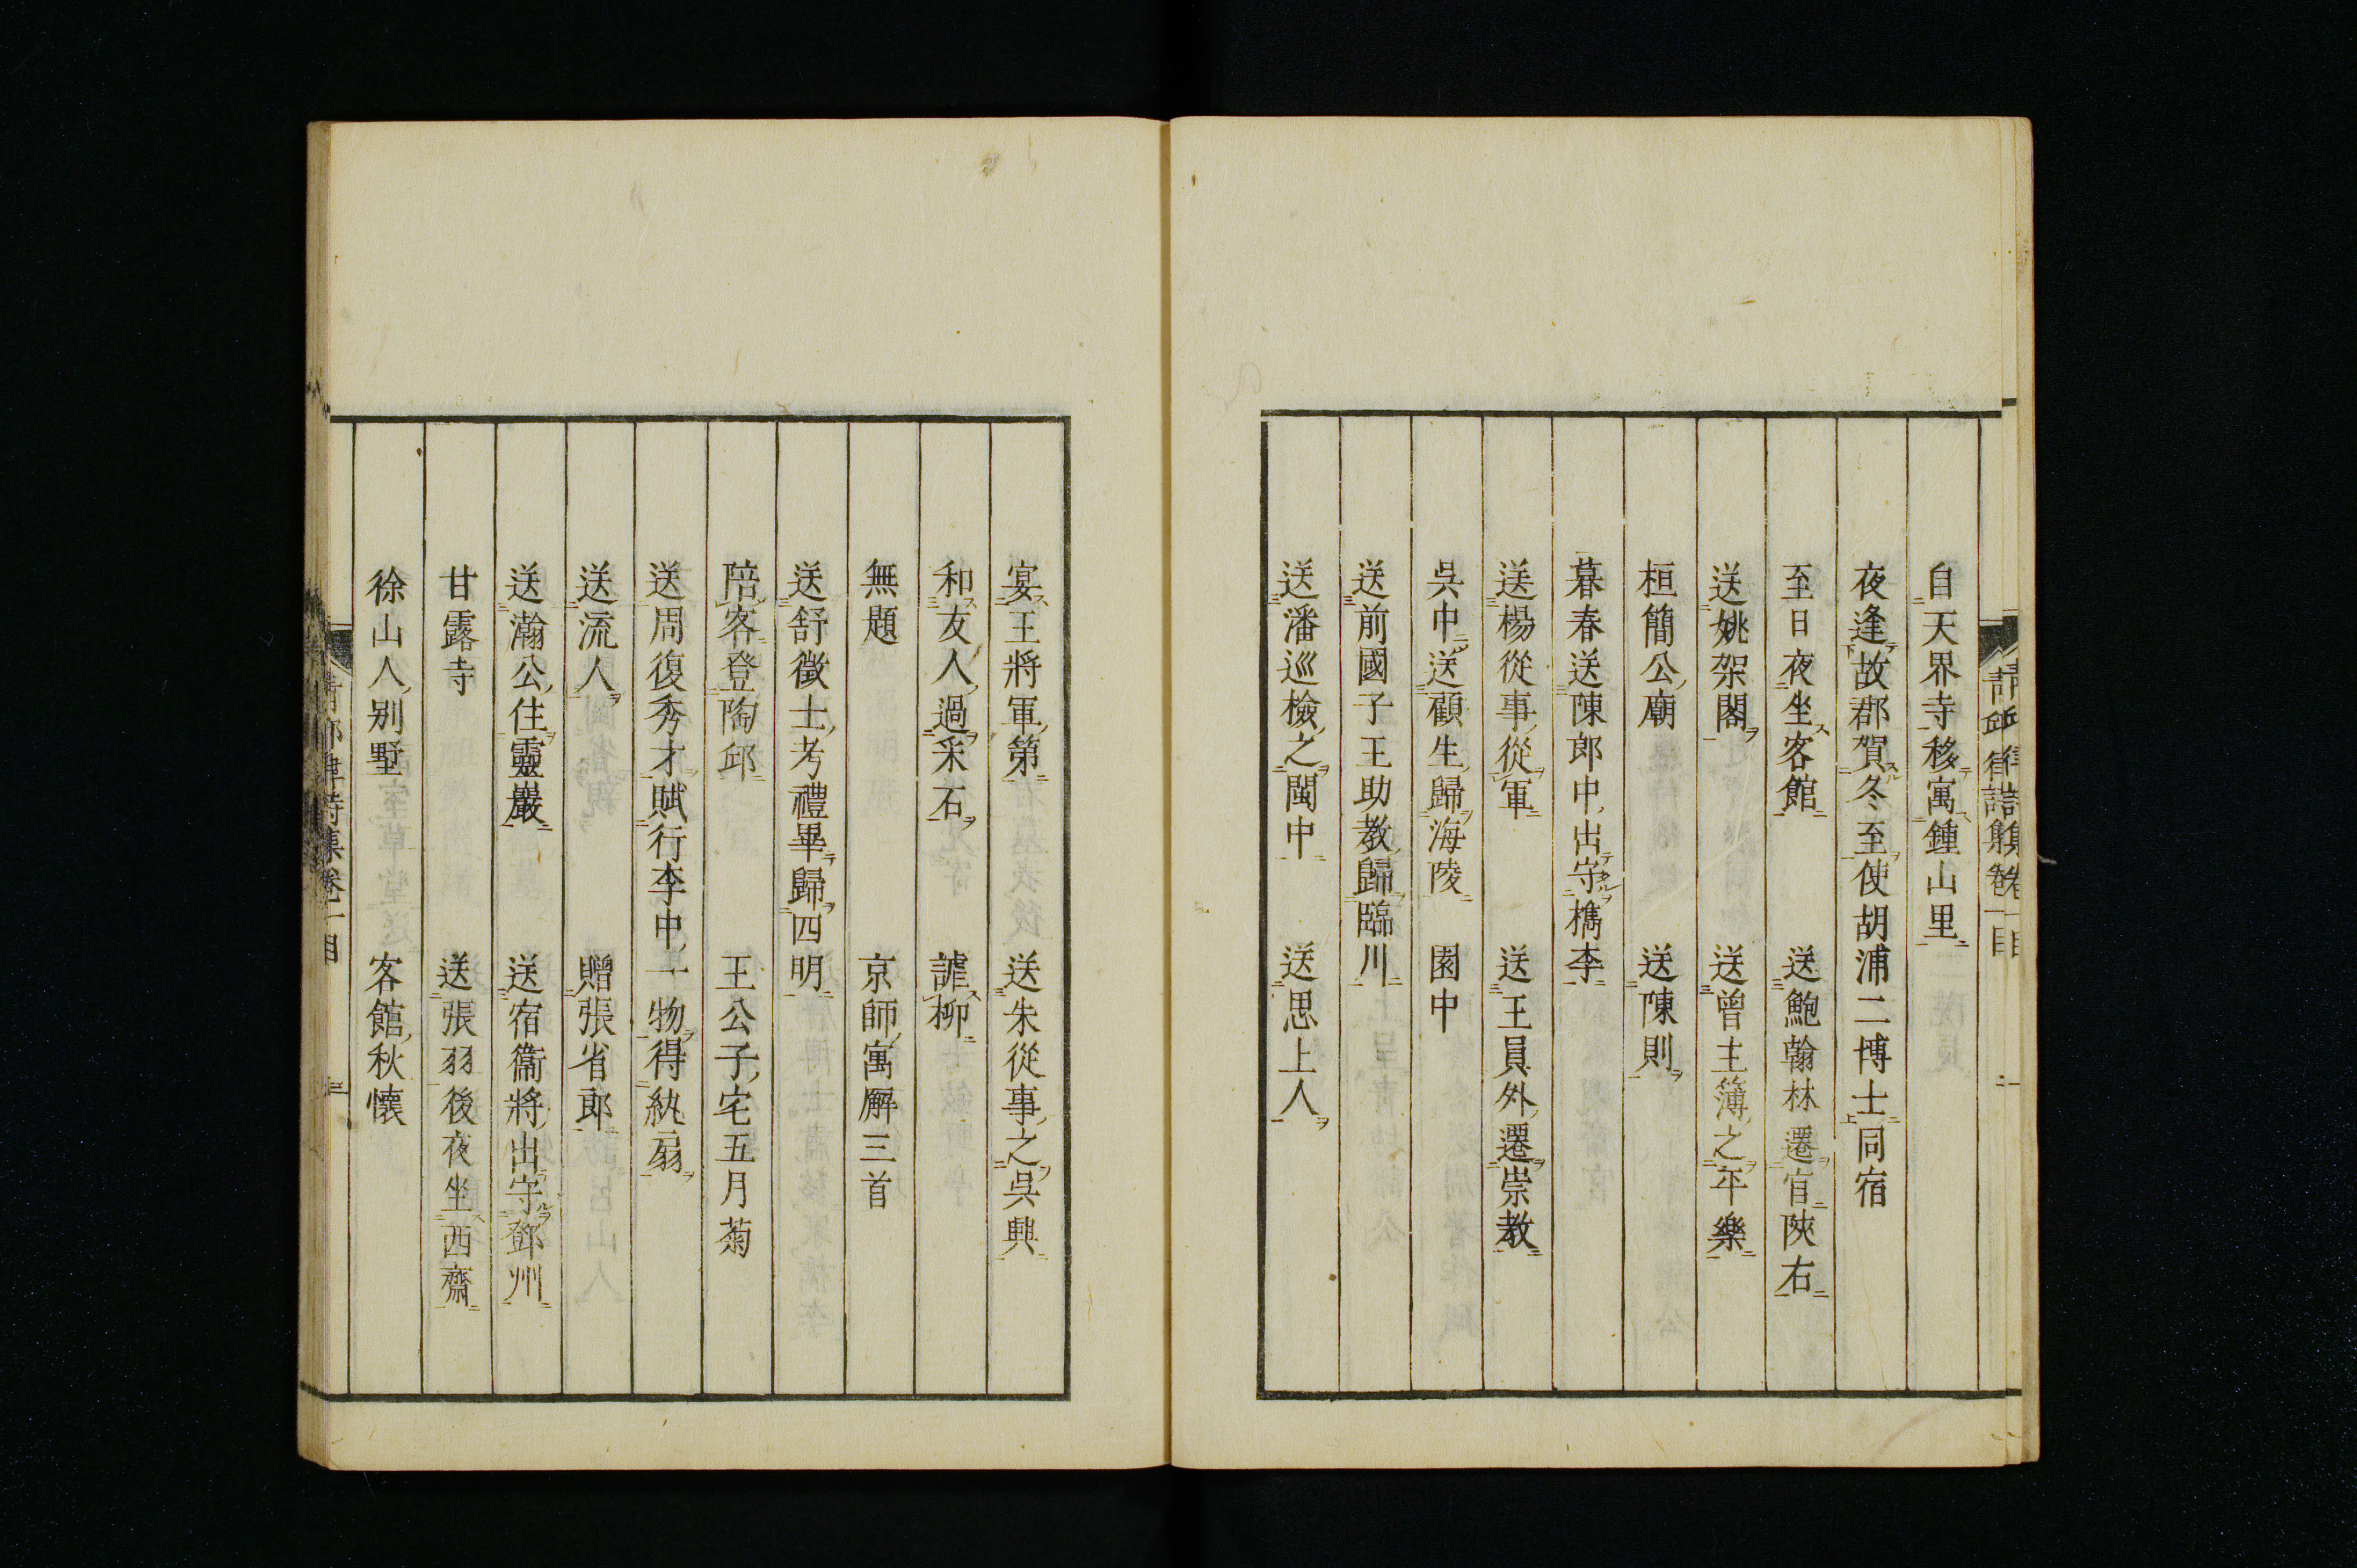 自天界寺移寓鍾山里
夜逢故郡賀冬至使胡浦二博士同宿
至日夜坐客館　送鮑翰林遷官陝右
送姚架閣　送曾主簿之平樂
桓簡公廟　送陳則
暮春送陳郎中出守檇李
送楊從事從軍　送王員外遷崇教
呉中送顧生歸海陵　園中
送前國子王助教歸臨川
送潘巡檢之閩中　送思上人
宴王將軍第　送朱從事之呉興
和友人過采石　謔柳
無題　京師寓廨三首
送舒徵士考禮畢歸四明
陪客登陶邱　王公子宅五月菊
送周復秀才賦行李中一物得紈扇
送流人　贈張省郎
送瀚公住靈巖　送宿衞將出守鄧州
甘露寺　送張羽後夜坐西齋
徐山人別墅　客館秋懷